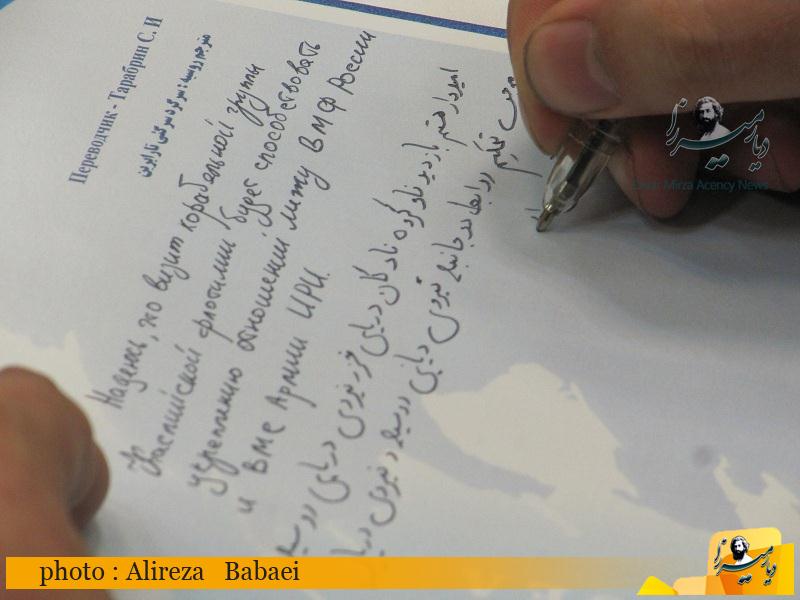 Переводчик - Тарабрин С. И
مترجم روسیه : سرگرد سرگئی تارابرین
Надеюсь, что визит корабельной группы
Каспийской флотилии будет способствовать
укреплению отношений между ВМФ России
и ВМС Армии ИРИ.
امیدوار هستم بازدید ناوگروه ناوگان دریای خزر نیروی دریایی روسیه
موجب تحکیم روابط دو جانبه نیروی دریایی روسیه و نیروی
دیار میرزا
Diyar Mirza Acency News
photo : Alireza Babaei
دیار میرزا